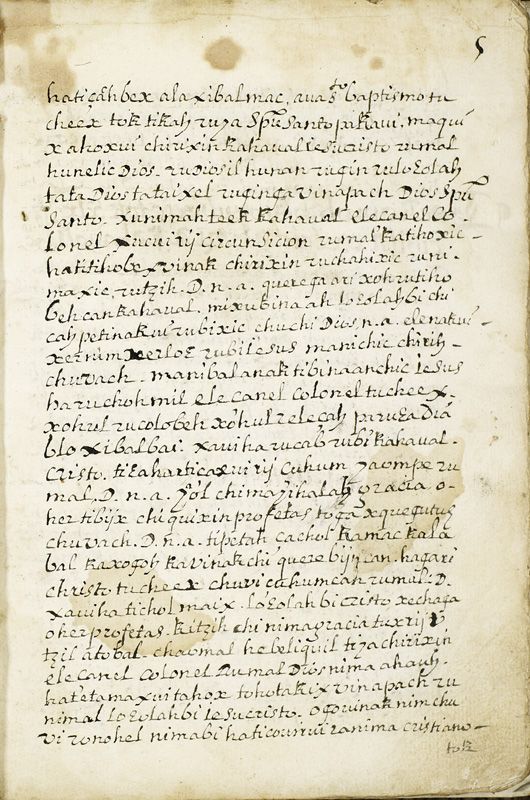 5
haticahbex ala xibalmac, auas sto baptismo tu
cheex tok tikah ruya Spū Santo pakaui, maqui
x ahoxui chirixin kahaual iesucristo rumal
hunelic Dios. ru Diosil hunan rugin rulogolah
tata Dios tataixel ruginga vinapach Dios Spū
Santo. xunimahteek kahaual elecanel Co-
lonel xucui rij circunsicion rumal katihoxic-
hatitihobex vinak chirixin ruchahixic runi-
maxic, rutzih. D. n. a. querega ari xoh rutiho
beh can kahaual. mixubina ah logolah bi chi
cah petinakui rubixic chuchi Dios n. a. elenakui-
xernim xerlog rubi iesus manichic chirih-
chuvach. manibalanak tibinaanchic iesus
haruchohmil elecanel colonel tucheex.
xohul rucolobeh xohul relecah paruga Diā
blo xibalbai. xauiharucab rubi kahaual.
Cristo. tigaharticaxui rij cuhum yaompe ru
mal. D. n. a. yol chimayihalah gracia. o-
her tibijx chiquixin profetas toga xquegutuh
chuvach. D. n. a. tipetah cachol kamac kala
bal kaxogoh kavinakchi quere bijtican. hagari
christo tucheex chuvi cuhumcan rumal. D.
xauiha tichol maix. logolah bi cristo xechaga
oher profetas. kitzih chi nima gracia tuxrij
tzil atobal. chaomal hebeliquil tiya chirixin
elecanel colonel Rumal Dios nima ahauh.
hatetamaxuitahox tohotakix vinapach ru
nimal logolah bi iesucristo. ogouinak nim chu
vi ronohel nima bi haticouirui ranima cristiano-
tok